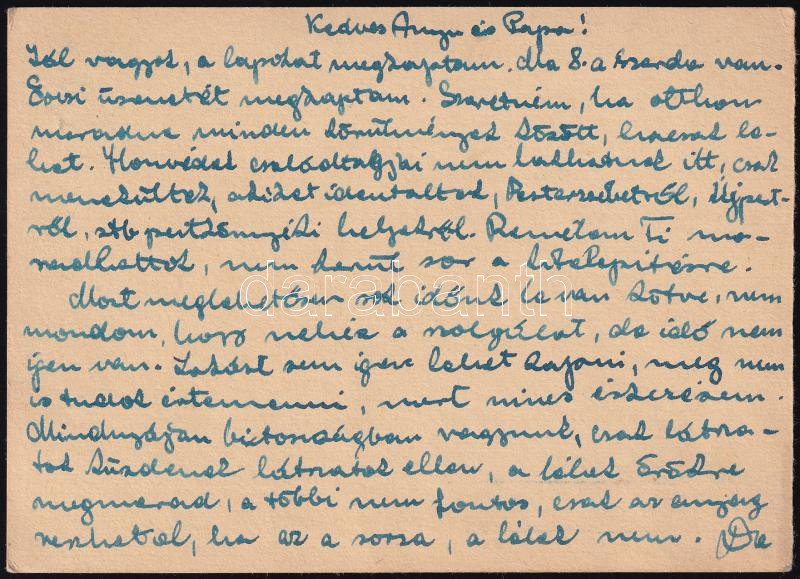 Kedves Anyu és Papa!
Jól vagyok, a lapokat megkaptam. Ma 8.-a szerda van.
üzenetét megkaptam. Szeretném, ha otthon
maradna minden körülmények között, ha csak le-
het. Honvédek családtagjai nem lakhatnak itt, csak
menekültek, akiket ideutaltak, Pesterzsébetről, Ujpest-
ről, stb pestkörnyéki helyekről. Remélem Ti ma-
radhattok, nem kerül sor a kitelepítésre.
darabanth
Most meglehetősen sok időnk le van kötve, nem
mondom, hogy nehéz a szolgálat, de idő nem
igen van. Lakást sem igen lehet kapni, meg nem
is tudok érte menni, mert nincs
Mindnyájan biztonságban vagyunk, csak látsza-
tok küzdenek látszatok ellen, a lélek örökre
megmarad, a többi nem fontos, csak az anyag
veszhet el, ha az a sorsa, a lélek nem.